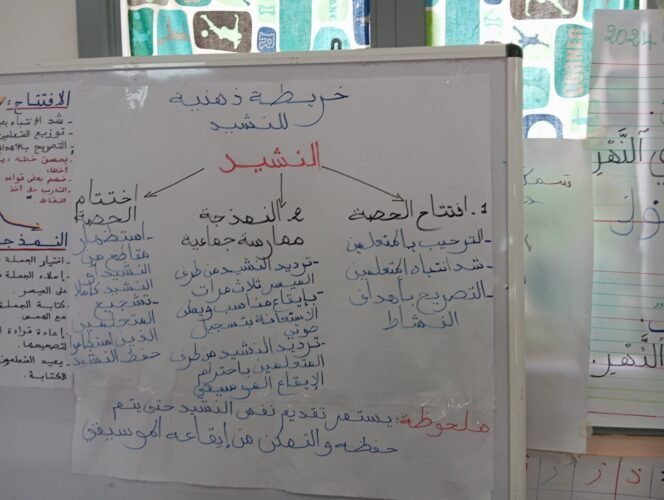 خريطة ذهنية
للنشيد
النشيد
1. افتتاح الحصة
- الترحيب بالمتعلمين
- شد انتباه المتعلمين
- التصريح بأهداف
النشاط
2. النمذجة
ممارسة جماعية
- ترديد النشيد من طرف
الميسر ثلاث مرات
بإيقاع مناسب ويمكن
الاستعانة بتسجيل
صوتي
- ترديد النشيد من طرف
المتعلمين باحترام
الإيقاع الموسيقي
اختتام
الحصة
- استظهار
مقاطع من
النشيد أو
النشيد كاملا
- تشجيع
المتعلمين
الذين استطاعوا
حفظ النشيد
ملحوظة: يستمر تقديم نفس النشيد حتى يتم
حفظه والتمكن من إيقاعه الموسيقي
الافتتاح:
- شد الانتباه
- توزيع المتعلمين
التصريح بالأهداف
النمذجة
- اختيار الجملة
- إملاء الجملة
على الميسر
- كتابة الجملة
- إعادة قراءة
لتصحيحها
- يعيد المتعلمون
الكتابة.
2024
النَّهْرِ
النَّهْرِ.